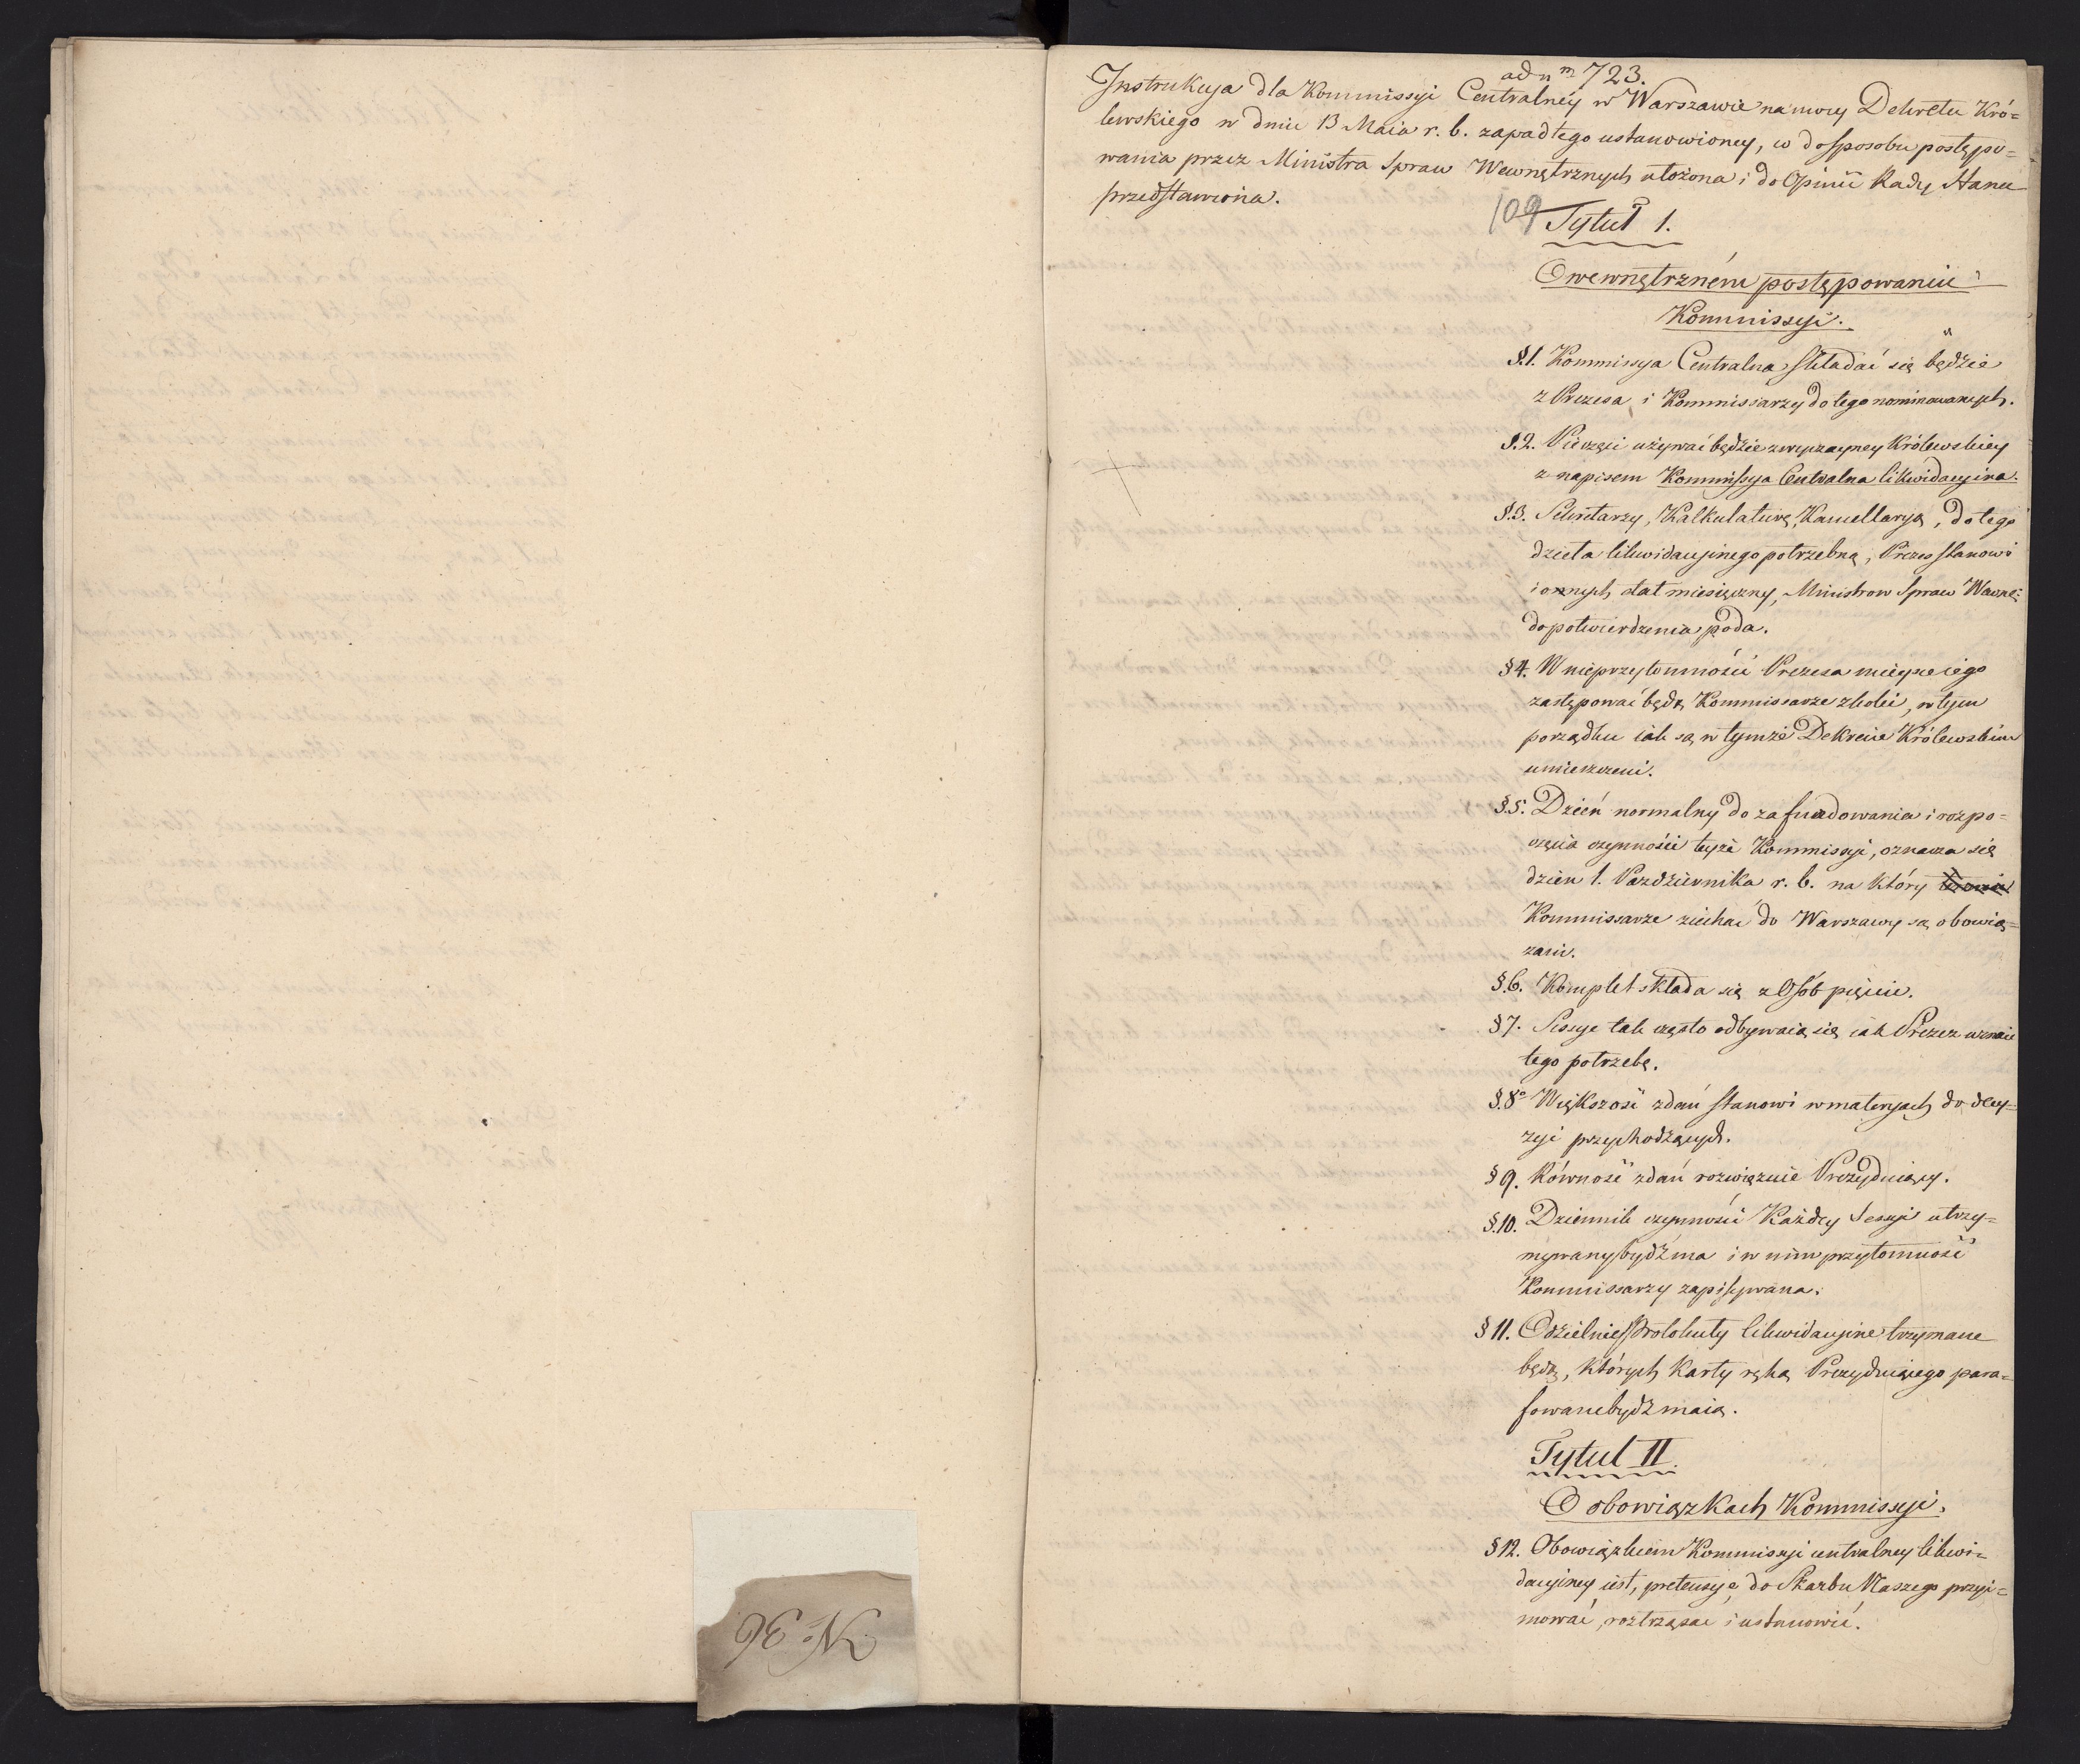 ad nm 723.
Instrukcya dla Kommissyi Centralnéy w Warszawie na mocy Dekretu Kró=
lewskiego w dniu 13 Maia r. b. zapadłego ustanowioney, co do sposobu postępo=
wania przez Ministra Spraw Wewnętrznych ułożona i do Opinii Rady Stanu
przedstawiona.
109
Tytuł 1.
O wewnętrzném postępowaniu
Kommissyi.
§.1. Kommissya Centralna składać się będzie
z Prezesa i Kommissarzy do tego nominowanych.
§.2. Pieczęci używać będzie zwyczayney Królewskiey
z napisem Kommissya Centralna likwidacyina.
§.3. Sekretarzy, Kalkulaturę, Kancellaryą, do tego
dzieła likwidacyinego potrzebną, Prezes stanowi
i onnych etat miesięczny, Ministrowi Spraw Wewnę:
do potwierdzenia poda.
§4. W nieprzytomności Prezesa mieysce iego
zastępować będą Kommissarze z kolei, w tym
porządku iak są w tymże Dekrecie Królewskim
umieszczeni.
§.5. Dzień normalny do zafundowania i rozpo=
częcia czynności teyże Kommissyi, oznacza się
dzień 1. Pazdziernika r. b. na który
Kommissarze ziechać do Warszawy są obowią=
zani.
§.6. Komplet składa się z Osób pięciu.
§7. Sessye tak często odbywaią się iak Prezez uznaie
tego potrzebę.
§.8o Większość zdań stanowi w materyach do decy=
zyi przychodzących.
§9. Równość zdań rozwięzuie Prezyduiący.
§.10. Dziennik czynności Każdey Sessyi utrzy=
mywany bydź ma i w nim przytomność
Kommissarzy zapisywana.
§11. Oddzielnie Protokuły likwidacyine trzymane
będą, których Karty ręką Prezyduiącego para=
fowane bydź maią.
Tytuł II.
O obowiązkach Kommissyi.
§12. Obowiązkiem Kommissyi centralney likwi=
dacyiney iest, pretensye do Skarbu Naszego przyi=
mować, roztrząsać i ustanowić.